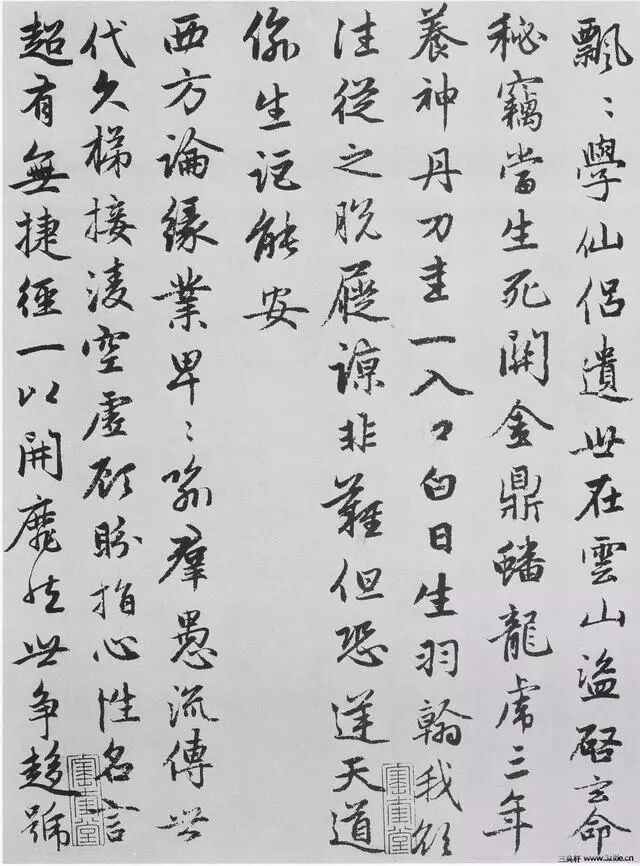 飄〻學仙侶遺世在雲山盜啓玄命
秘竊當生死關金鼎蟠龍虎三年
養神丹刀圭一入口白日生羽翰我欲
往從之脫屣諒非難但恐逆天道
偷生詎能安
西方論緣業卑〻喻羣愚流傳世
代久梯接凌空虛顧盼指心性名言
超有無捷徑一以開靡然世争趨號
www.3zitie.cn